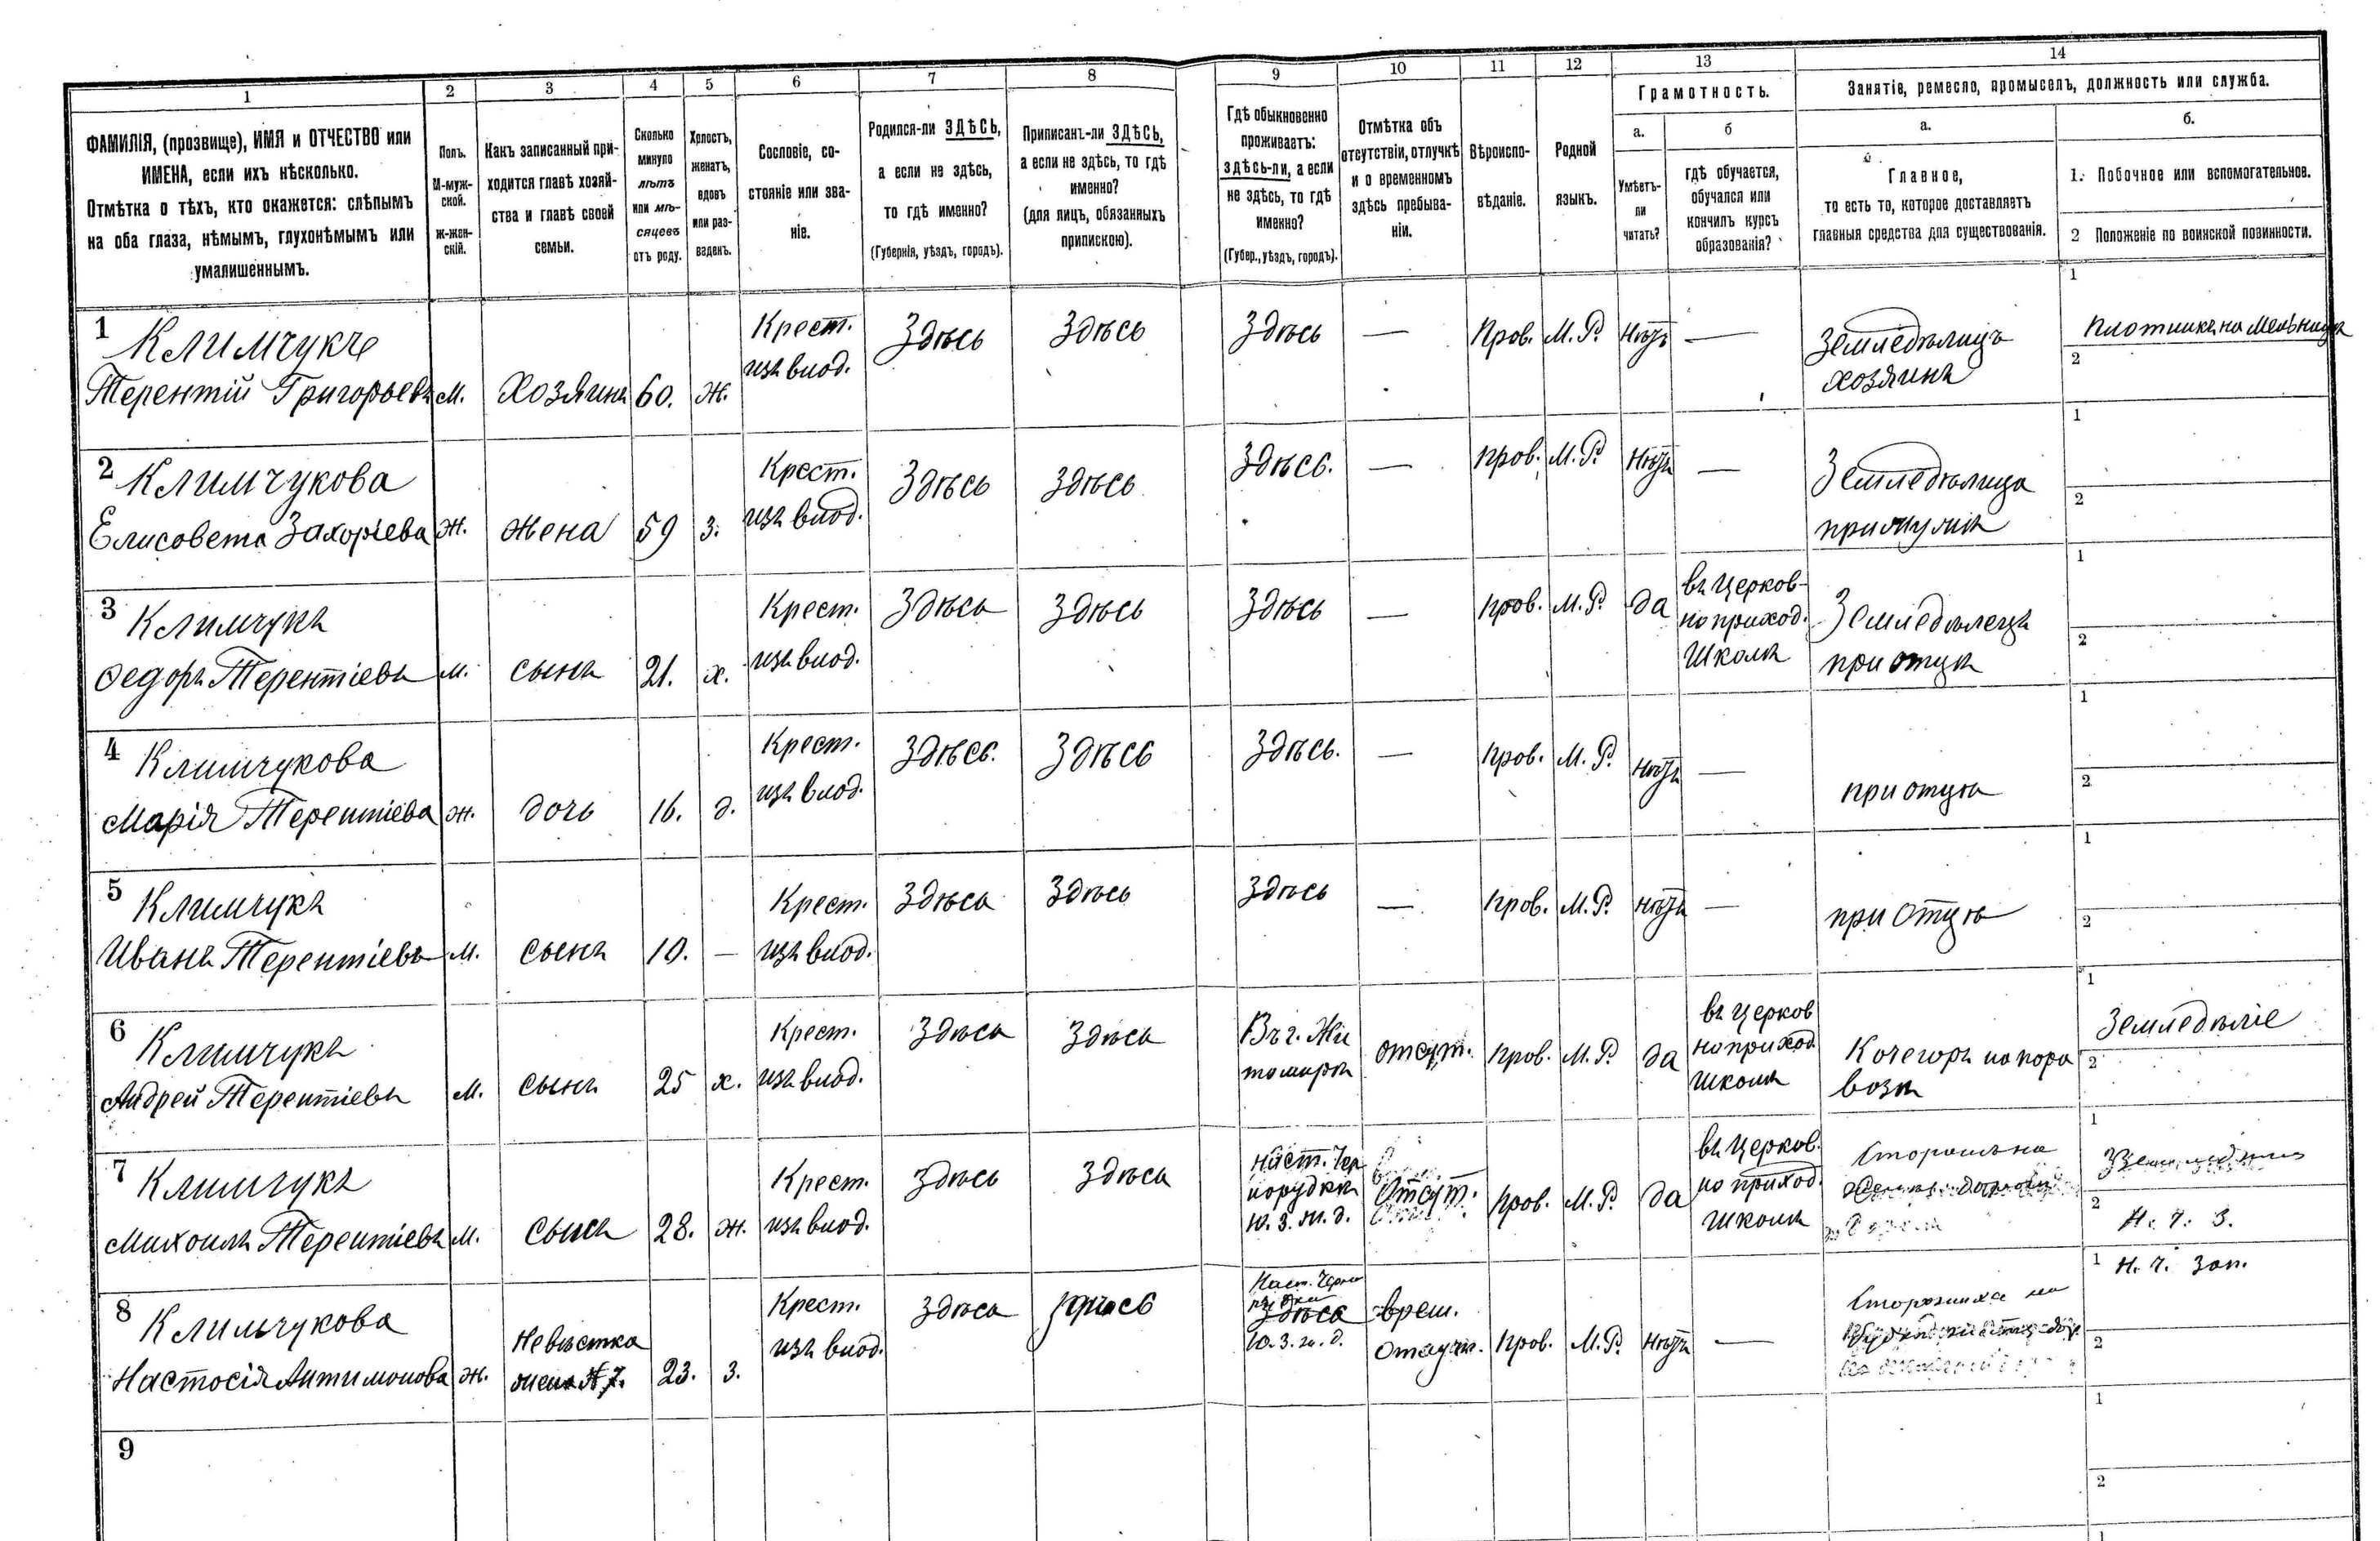 1 2 3 4 5 6 7 8 9 10 11 12 13 14
ФАМИЛІЯ, (прозвище), ИМЯ и ОТЧЕСТВО или
ИМЕНА, если ихъ нѣсколько.
Отмѣтка о тѣхъ, кто окажется: слѣпымъ
на оба глаза, нѣмымъ, глухонѣмымъ или
умалишеннымъ.
Полъ.
М-муж-
ской.
ж-жен-
скій.
Какъ записанный при-
ходится главѣ хозяй-
ства и главѣ своей
семьи.
Сколько
минуло
лѣтъ
или мѣ-
сяцевъ
отъ роду.
Холостъ,
женатъ,
вдовъ
или раз-
веденъ.
Сословіе, со-
стояніе или зва-
ніе.
Родился-ли ЗДѢСЬ,
а если не здѣсь,
то гдѣ именно?
(Губернія, уѣздъ, городъ).
Приписанъ-ли ЗДѢСЬ,
а если не здѣсь, то гдѣ
именно?
(для лицъ, обязанныхъ
припискою).
Гдѣ обыкновенно
проживаетъ:
здѣсь-ли, а если
не здѣсь, то гдѣ
именно?
(Губер., уѣздъ, городъ).
Отмѣтка объ
отсутствіи, отлучкѣ
и о временномъ
здѣсь пребыва-
ніи.
Вѣроиспо-
вѣданіе.
Родной
языкъ.
Грамотность.
а.
Умѣетъ-
ли
читать?
б
гдѣ обучается,
обучался или
кончилъ курсъ
образованія?
Занятіе, ремесло, промыселъ, должность или служба.
а.
Главное,
то есть то, которое доставляетъ
главныя средства для существованія.
б.
1. Побочное или вспомогательное.
2 Положеніе по воинской повинности.
1 Климчукъ
Терентій Григорьевъ
М.
Хозяинъ
60.
Ж.
Крест.
изъ влад.
Здѣсь
Здѣсь
Здѣсь
—
Пров.
М. Р.
Нѣтъ
—
Земледѣлицъ
хозяинъ
1
Плотникъ на Мельницѣ
2
2 Климчукова
Елисовета Захоріева
Ж.
Жена
59
З.
Крест.
изъ влод.
Здѣсь
Здѣсь
Здѣсь.
—
пров.
М. Р.
Нѣтъ
—
Земледѣлица
при мужѣ
1
2
3 Климчукъ
Ѳедоръ Терентіевъ
М.
сынъ
21.
х.
Крест.
изъ влод.
Здѣсь
Здѣсь
Здѣсь
—
пров.
М. Р.
да
въ Церков-
но приход.
Школѣ
Земледѣлецъ
при отцѣ
1
2
4 Климчукова
Марія Терентіева
Ж.
дочь
16.
д.
Крест.
изъ влод.
Здѣсь.
Здѣсь
Здѣсь.
—
пров.
М. Р.
нѣтъ
—
при отцѣ
1
2
5 Климчукъ
Иванъ Терентіевъ
М.
сынъ
10.
—
Крест.
изъ влод.
Здѣсь
Здѣсь
Здѣсь
—
пров.
М. Р.
нѣтъ
—
при отцѣ
1
2
6 Климчукъ
Андрей Терентіевъ
М.
сынъ
25
х.
Крест.
изъ влод.
Здѣсь
Здѣсь
Въ г. Жи
томирѣ
отсут.
пров.
М. Р.
да
въ Церков
но приход
школѣ
Кочегоръ на поро
возѣ
1
Земледѣліе
2
7 Климчукъ
Михоилъ Терентіевъ
М.
сынъ
28.
Ж.
Крест.
изъ влод.
Здѣсь
Здѣсь
на ст. Чер
норудкѣ
Ю. З. ж. д.
Отсут.
пров.
М. Р.
да
въ Церков.
но приход.
школѣ
Сторожъ на
1
Земледѣліе
2
Н. Ч. З.
8 Климчукова
Настосія Антимонова
Ж.
Невѣстка
жена № 7.
23.
З.
Крест.
изъ влод.
Здѣсь
Здѣсь
На ст. Черно
рудки
Здѣсь
Ю. З. ж. д.
врем.
Отсут.
пров.
М. Р.
Нѣтъ
—
Сторожиха на
1
Н. Ч. Зап.
2
9
1
2
1